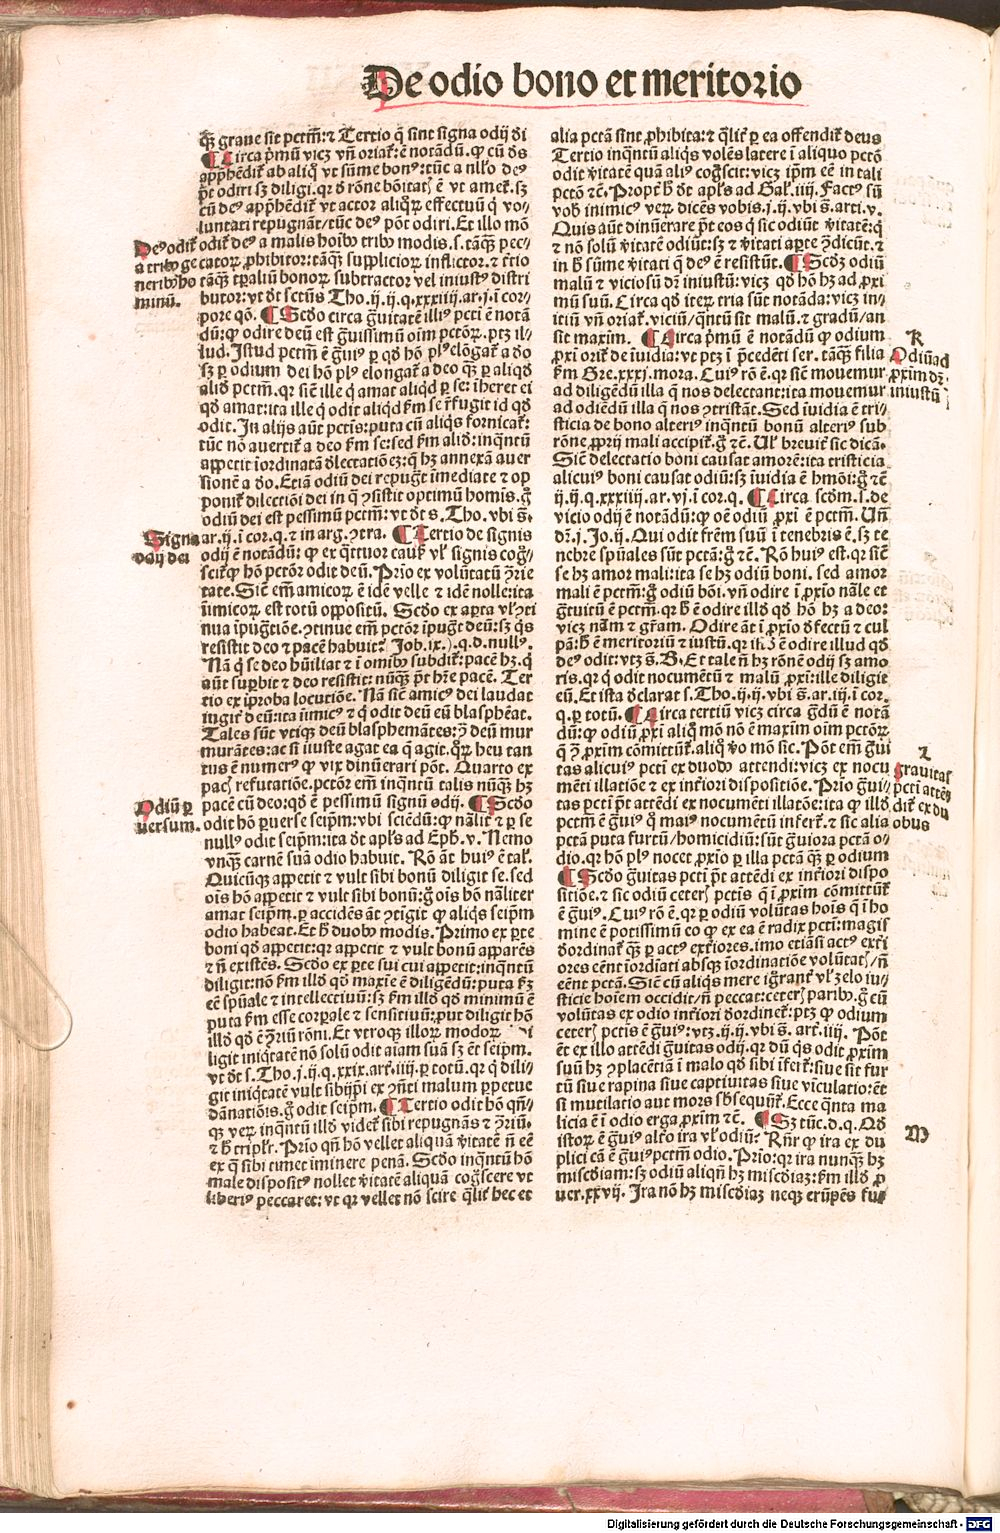 De odio bono et meritorio
q̃ʒ graue sit pctm̃: ⁊ Tertio q̃ sint signa odij di
¶ Circa p̃mũ vicʒ vñ oriat᷑: ẽ notãdũ. ꝙ cũ ds̃
app̃hẽdit᷑ ab aliq̃ vt sũme bonꝰ: tũc a nll̃o deꝰ
p̃t odiri sʒ diligi. qꝛ d̃ rõne bõitatꝭ ẽ vt amet᷑. sʒ
cũ deꝰ app̃hẽdit᷑ vt actor aliqꝝ effectuũ q̃ vo-
luntati repugnãt: tũc deꝰ põt odiri. Et illo mõ
odit᷑ deꝰ a malis hoibꝰ tribꝰ modis. s. tãq̃ʒ pec-
catoꝝ ꝓhibitor: tãq̃ʒ supplicioꝝ inflictor. ⁊ t̃tio
tãq̃ʒ tꝑaliũ bonoꝝ subtractor vel iniustꝰ distri
butor: vt dt̃ sctũs Tho. ij. ij. q. xxxiiij. ar. j. ĩ cor-
pore qõ. ¶ Scd̃o circa g̃uitatẽ illiꝰ pcti ẽ notã
dũ: ꝙ odire deũ est g̃uissimũ oĩm pctõꝝ. ptʒ il-
lud. Istud pctm̃ ẽ g̃uiꝰ ꝑ qd̃ hõ plꝰ elõgat᷑ a do
sʒ ꝑ odium dei hõ plꝰ elongat᷑ a deo q̃ʒ ꝑ aliqd̃
aliđ pctm̃. qꝛ siẽ ille q̃ amat aliqd̃ ꝑ se: ĩheret ei
qd̃ amat: ita ille q̃ odit aliqd̃ ẜm se r̃fugit id qd̃
odit. In alijs aũt pctĩs: puta cũ aliqs fornicat᷑:
tũc nõ auertit᷑ a deo ẜm se: sed ẜm aliđ: inq̃ntũ
appetit ĩordinatã dlectatiõeʒ: q̃ hʒ annexã auer
sionẽ a do. Etiã odiũ dei repugt̃ ĩmediate ⁊ op
ponit᷑ dilectiõi dei in q̃ ꝯsistit optimũ homis. g̃
odiũ dei est pessimũ pctm̃: vt dt̃ s. Tho. vbi s̃.
ar. ij. ĩ cor. q. ⁊ in arg. ꝯtra. ¶ Tertio de signis
odij ẽ notãdũ: ꝙ ex q̃ttuor cauẜ vl̃ signis cog̃-
scit᷑ ꝙ hõ pctõr odit deũ. Prĩo ex volũtatũ ꝯ̃rie
tate. Siẽ em̃ amicoꝝ ẽ idẽ velle ⁊ idẽ nolle: ita
ĩimicoꝝ est totũ oppositũ. Scd̃o ex aꝑta vl̃ ꝯti
nua ĩpug̃tiõe. ꝯtinue em̃ pctõr ĩpugt̃ deũ: sʒ q̃s
resistit deo ⁊ pacẽ habuit: Job. ix. q. d. nullꝰ.
Nã q̃ se deo hũiliat ⁊ ĩ omĩbꝰ subdit᷑: pacẽ hʒ. q̃
aũt suꝑbit ⁊ deo resistit: nũq̃ʒ p̃t hr̃e pacẽ. Ter
tio ex ĩproba locutiõe. Nã siẽ amicꝰ dei laudat
iugit᷑ deũ: ita ĩimicꝰ ⁊ q̃ odit deũ eũ blasphẽat.
Tales sũt vtiq̃ʒ deũ blasphemãtes: ꝯ̃ deũ mur
murãtes: ac si iniuste agat ea q̃ agit. qꝝ heu tan
tus ẽ numerꝰ ꝙ vix dinũerari põt. Quarto ex
pacꝭ refutatiõe. pctõr em̃ inq̃ntũ talis nũq̃ʒ hʒ
pacẽ cũ deo: qd̃ ẽ pessimũ signũ odij. ¶ Scd̃o
odit hõ ꝑuerse seipm̃: vbi sciẽdũ: ꝙ nãlit᷑ ⁊ ꝑ se
nullꝰ odit seipm̃: ita dt̃ apl̃s ad Eph. v. Nemo
vnq̃ʒ carnẽ suã odio habuit. Rõ aũt huiꝰ ẽ tal᷑.
Quicũq̃ʒ appetit ⁊ vult sibi bonũ diligit se. sed
oĩs hõ appetit ⁊ vult sibi bonũ: g̃ oĩs hõ nãliter
amat seipm̃. ꝑ accidẽs aũt ꝯtigit ꝙ aliq̃s seipm̃
odio habeat. Et h̃ duobꝰ modis. Primo ex ꝑte
boni qd̃ appetit: qꝛ appetit ⁊ vult bonũ apparẽs
⁊ ñ existẽs. Scd̃o ex ꝑte sui cui appetit: inq̃ntũ
diligit: nõ ẜm illđ qd̃ maxĩe ẽ diligẽdũ: puta ẜʒ
eẽ spũale ⁊ intellectiuũ: sʒ ẜm illđ qd̃ minimũ ẽ
puta ẜm esse corꝑale ⁊ sensitiuũ: ꝓut diligit hõ
illđ qd̃ ẽ ꝯ̃riũ rõni. Et vtroq̃ʒ illoꝝ modoꝝ di
ligit iniq̃tatẽ nõ solũ odit aĩam suã sʒ ẽt seipm̃.
vt dt̃ s. Tho. j. ij. q. xxix. art. iiij. ꝑ totũ. qꝛ q̃ dili-
git iniq̃tatẽ vult sibijp̃i ex ꝯ̃nti malum ꝑpetue
dãnatiõis. g̃ odit seipm̃. ¶ Tertio odit hõ qñ-
q̃ʒ veꝝ inq̃ntũ illđ videt᷑ sibi repugnãs ⁊ ꝯ̃riũ.
⁊ h̃ tripl᷑r. Prĩo qñ hõ vellet aliquã v̾itatẽ ñ eẽ
ex q̃ sibi timet ĩminere penã. Scd̃o inq̃ntũ hõ
male dispositꝰ nollet v̾itatẽ aliquã cog̃scere vt
liberiꝰ peccaret: vt qꝛ vellet nõ scire q̃lit᷑ hec et
Deꝰ odit᷑
a tribꝰ ge
neribꝰ ho
minũ.
Signa
odij dei
Odiũ ꝑ
uersum.
alia pctã sint ꝓhibita: ⁊ q̃lit᷑ ꝑ ea offendit᷑ deus
Tertio inq̃ntũ aliq̃s volẽs latere ĩ aliquo pctõ
odit v̾itatẽ quã aliꝰ cog̃scit: vicʒ ipm̃ eẽ in tali
pctõ ⁊c̃. Propt̃ h̃ dt̃ apl̃s ad Gal. iiij. Factꝰ sũ
vob̾ inimicꝰ veꝝ dicẽs vobis. j. ij. vbi s̃. arti. v.
Quis aũt dinũerare p̃t eos q̃ sic odiũt v̾itatẽ: q̃
⁊ nõ solũ v̾itatẽ odiũt: sʒ ⁊ v̾itati aꝑte ꝯ̃dicũt. ⁊
in h̃ sũme v̾itati q̃ deꝰ ẽ resistũt. ¶ Scd̃ʒ odiũ
malũ ⁊ viciosũ dr̃ iniustũ: vicʒ qd̃ hõ hʒ ad ꝓxi
mũ suũ. Circa qd̃ iteꝝ tria sũt notãda: vicʒ in-
itiũ vñ oriat᷑. viciũ/q̃ntũ sit malũ. ⁊ gradũ/an
sit maxim. ¶ Circa p̃mũ ẽ notãdũ ꝙ odium
ꝓxi orit᷑ de ĩuidia: vt ptʒ ĩ p̃cedẽti ser. tãq̃ʒ filia
ẜm Gre. xxxj. mora. Cuiꝰ rõ ẽ. qꝛ siẽ mouemur
ad diligẽdũ illa q̃ nos delectant: ita mouemur
ad odiẽdũ illa q̃ nos ꝯtristãt. Sed ĩuidia ẽ tri-
sticia de bono alteriꝰ inq̃ntũ bonũ alteriꝰ sub
rõne ꝓprij mali accipit᷑. g̃ ⁊c̃. Ul̃ breuit᷑ sic dicã.
Siẽ delectatio boni causat amorẽ: ita tristicia
alicuiꝰ boni causat odiũ: sʒ ĩuidia ẽ hmõi: g̃ ⁊c̃
ij. ij. q. xxxiiij. ar. vj. ĩ cor. q. ¶ Circa scd̃m. s. de
vicio odij ẽ notãdũ: ꝙ oẽ odiũ ꝓxi ẽ pctm̃. Uñ
dr̃. j. Jo. ij. Qui odit frẽm suũ ĩ tenebris ẽ. sʒ te
nebre spũales sũt pctã: g̃ ⁊c̃. Rõ huiꝰ est. qꝛ siẽ
se hʒ amor mali: ita se hʒ odiũ boni. sed amor
mali ẽ pctm̃: g̃ odiũ bõi. vñ odire ĩ ꝓxĩo nãle et
g̃tuitũ ẽ pctm̃. qꝛ h̃ ẽ odire illđ qd̃ hõ hʒ a deo:
vicʒ nãm ⁊ gr̃am. Odire aũt ĩ ꝓxĩo d̾fectũ ⁊ cul
pã: h̃ ẽ meritoriũ ⁊ iustũ. qꝛ ih̃ ẽ odire illud qd̃
deꝰ odit: vtʒ s̃. B. Et tale ñ hʒ rõnẽ odij sʒ amo
ris. qꝛ q̃ odit nocumẽtũ ⁊ malũ ꝓxi: ille diligit
eũ. Et ista d̾clarat s. Tho. ij. ij. vbi s̃. ar. iij. ĩ cor.
q. ꝑ totũ. ¶ Circa tertiũ vicʒ circa g̃dũ ẽ notã
dũ: ꝙ odiũ ꝓxi aliq̃ mõ nõ ẽ maxim oĩm pctõꝝ
q̃ ꝯ̃ ꝓxim cõmittũt᷑. aliq̃ v̾o mõ sic. Põt em̃ g̃ui
tas alicuiꝰ pcti ex duobꝰ attendi: vicʒ ex nocu
mẽti illatiõe ⁊ ex int̾iori dispositiõe. Prĩo g̃ui-
tas pcti p̃t attẽdi ex nocumẽti illatõe: ita ꝙ illđ
pctm̃ ẽ g̃uiꝰ q̃ maiꝰ nocumẽtũ infert᷑. ⁊ sic alia
pctã puta furtũ/homicidiũ: sũt g̃uiora pctã o-
dio. qꝛ hõ plꝰ nocet ꝓxĩo ꝑ illa pctã q̃ʒ ꝑ odium
¶ Scd̃o g̃uitas pcti p̃t attẽdi ex int̾iori dispo
sitiõe. ⁊ sic odiũ ceterꝭ pctis q̃ ĩ ꝓxim cõmittũt᷑
ẽ g̃uiꝰ. Cuiꝰ rõ ẽ. qꝛ ꝑ odiũ volũtas hoĩs q̃ ĩ ho
mine ẽ potissimũ eo ꝙ ex ea ẽ radix pcti: magis
d̾ordinat᷑ q̃ʒ ꝑ actꝰ ext̾iores. imo etiãsi actꝰ ext̾i
ores eẽnt ĩordiati absq̃ʒ ĩordinatiõe volũtatꝭ/ñ
eẽnt pctã. Siẽ cũ aliq̃s mere ig̃rant᷑ vl̃ ʒelo iu-
sticie hoĩem occidit/ñ peccat: ceterꝭ paribꝰ. g̃ cũ
volũtas ex odio int̾iori d̾ordinet᷑: ptʒ ꝙ odium
ceterꝭ pctis ẽ g̃uiꝰ: vtʒ. ij. ij. vbi s̃. art. iiij. Põt
ẽt ex illo attẽdi g̃uitas odij. qꝛ dũ q̃s odit ꝓxim
suũ hʒ ꝯplacẽtiã ĩ malo qd̃ sibi ĩfert᷑: siue sit fur
tũ siue rapina siue captiuitas siue vĩculatio: ẽt
si mutilatio aut mors sb̾sequit᷑. Ecce q̃nta ma
licia ẽ ĩ odio erga ꝓxim ⁊c̃. ¶ Sʒ tũc. d. q. Qd̃
istoꝝ ẽ g̃uiꝰ alt̾o ira vl̃ odiũ: Rñr ꝙ ira ex du
plici cã ẽ g̃uiꝰ pctm̃ odio. Prĩo: qꝛ ira nunq̃ʒ hʒ
miscd̾iam: sʒ odiũ aliqñ hʒ miscd̾iaʒ: ẜm illđ ꝓ
uer. xxvij. Ira nõ hʒ miscd̾iaʒ neqʒ erũpẽs fu-
K
Odiũ ad
ꝓxim dr̃
iniustũ
L
Grauitas
pcti attẽ
dit᷑ ex du
obus
M
Digitalisierung gefördert durch die Deutsche Forschungsgemeinschaft - DFG